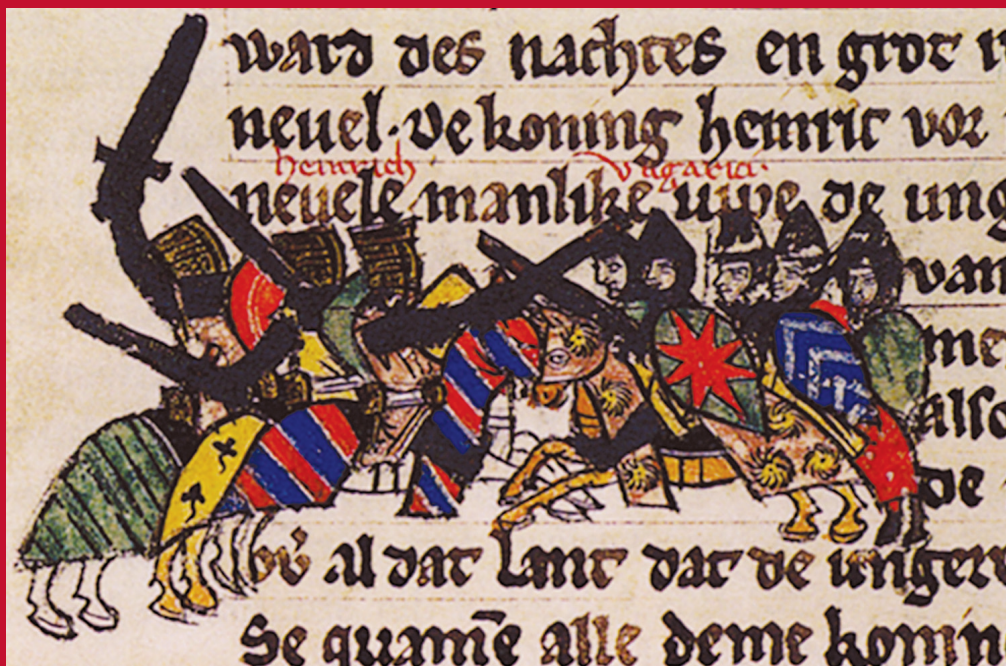 ward des nachtes en grot n
neuel. De koning heinric vor
heinrich vngaria.
neuele manlike uwe de ung
van
me
also
de
ov al dat lant dat de ungere
Se quamē alle deme konin